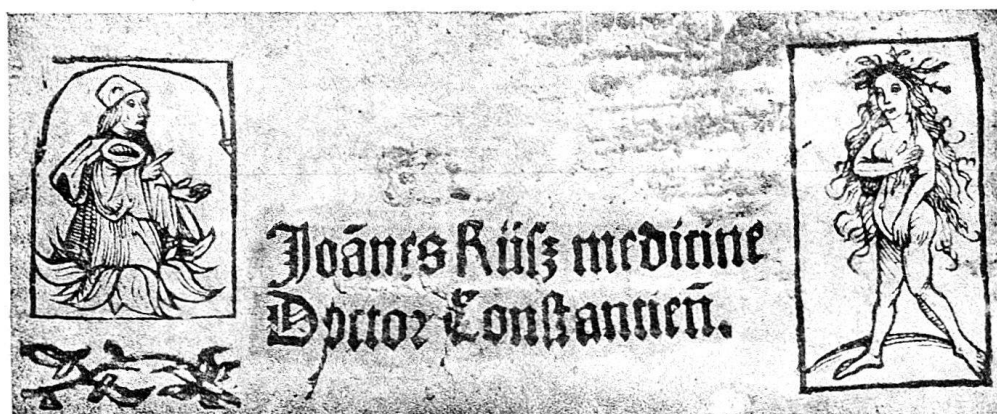 Joānes Rüſz medicine
Doctor Conſtantien̄.